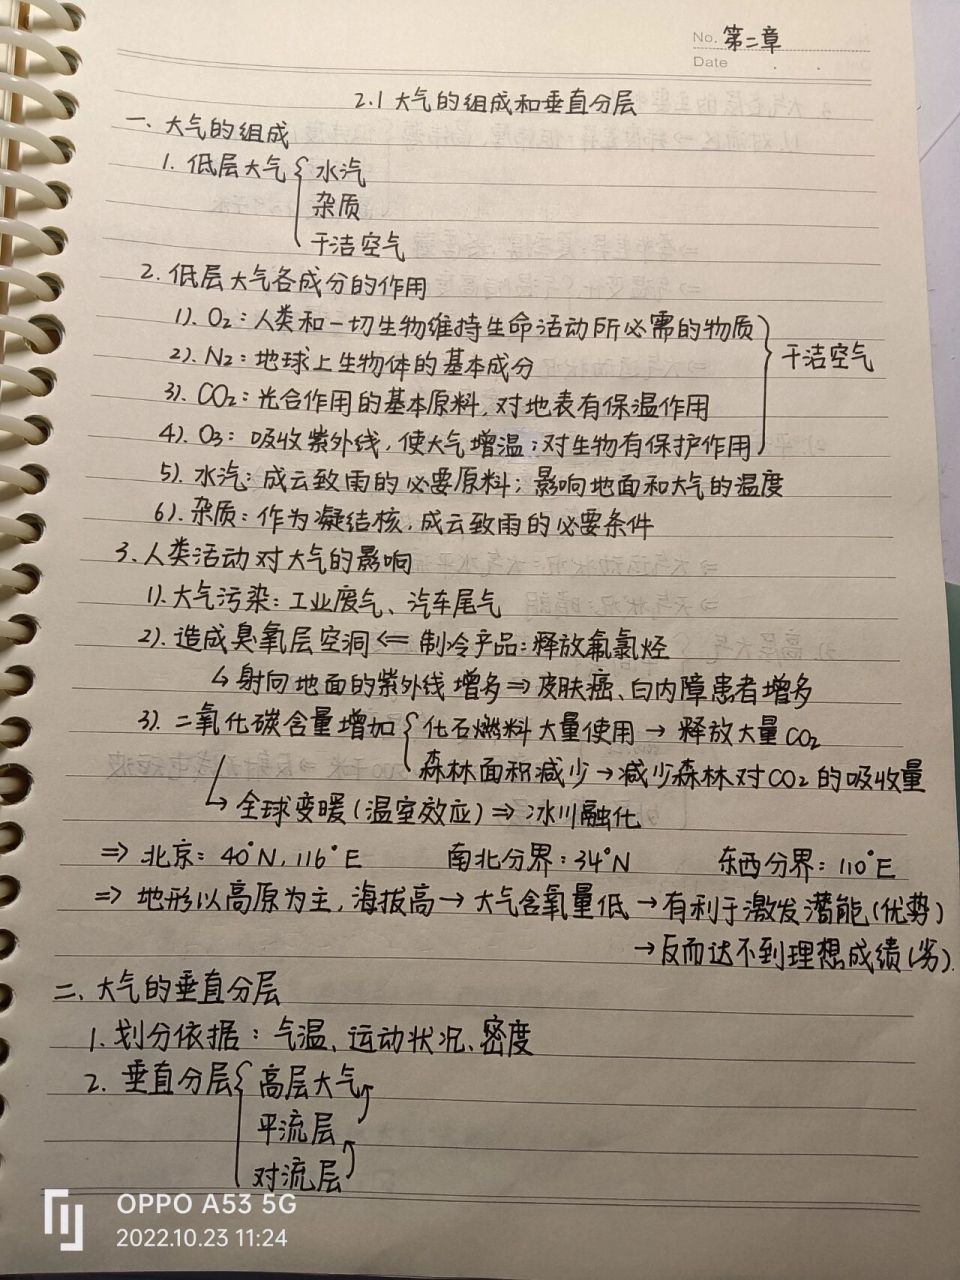 No. 第二章
Date
2.1 大气的组成和垂直分层
一、大气的组成
1. 低层大气{水汽
杂质
干洁空气
2. 低层大气各成分的作用
1). O₂:人类和一切生物维持生命活动所必需的物质
2). N₂:地球上生物体的基本成分
干洁空气
3). CO₂:光合作用的基本原料,对地表有保温作用
4). O₃:吸收紫外线,使大气增温;对生物有保护作用
5). 水汽:成云致雨的必要原料;影响地面和大气的温度
6). 杂质:作为凝结核,成云致雨的必要条件
3. 人类活动对大气的影响
1). 大气污染:工业废气、汽车尾气
2). 造成臭氧层空洞 ⇐ 制冷产品:释放氟氯烃
↳ 射向地面的紫外线增多 ⇒ 皮肤癌、白内障患者增多
3). 二氧化碳含量增加{化石燃料大量使用 → 释放大量CO₂
森林面积减少 → 减少森林对CO₂的吸收量
↳ 全球变暖(温室效应) ⇒ 冰川融化
⇒ 北京:40°N, 116°E 南北分界:34°N 东西分界:110°E
⇒ 地形以高原为主,海拔高 → 大气含氧量低 → 有利于激发潜能(优势)
→ 反而达不到理想成绩(劣).
二、大气的垂直分层
1. 划分依据:气温、运动状况、密度
2. 垂直分层{高层大气
平流层
对流层
OPPO A53 5G
2022.10.23 11:24